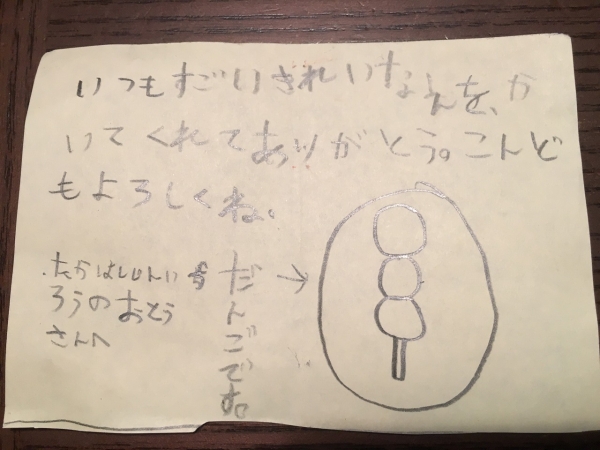 いつもすごいきれいなえを、か
いてくれてありがとう。こんど
もよろしくね。
だんごです。
→
.たかはししんい
ろうのおとう
さんへ